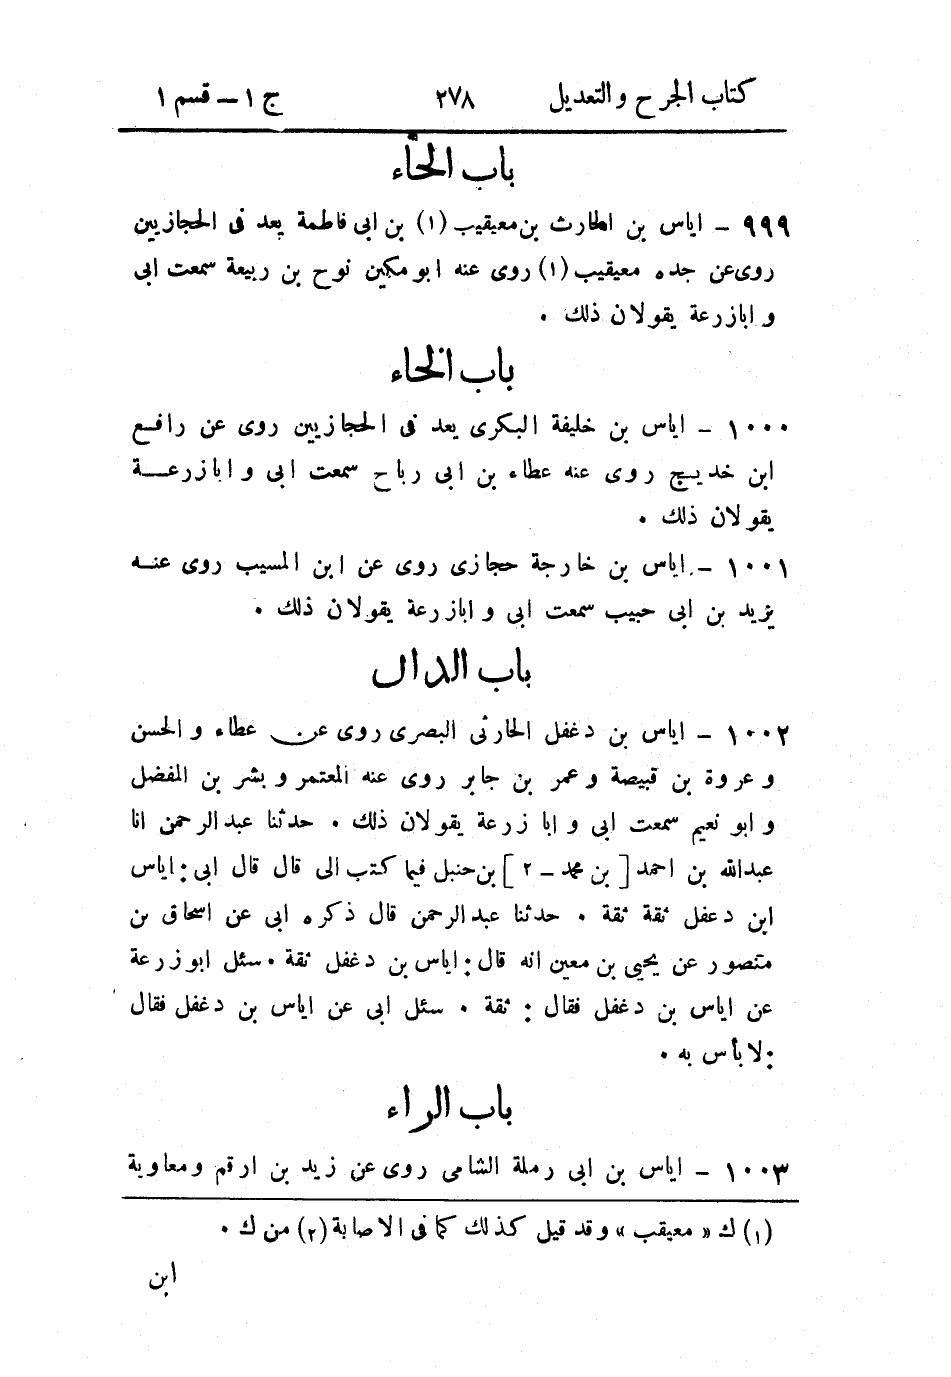 كتاب الجرح والتعديل ٢٧٨ ج ١ – قسم ١
باب الحاء
٩٩٩ – اياس بن الحارث بن معيقيب (١) بن ابى فاطمة يعد فى الحجازيين
روى عن جده معيقيب (١) روى عنه ابو مكين نوح بن ربيعة سمعت ابى
و ابا زرعة يقولان ذلك ٠
باب الخاء
١٠٠٠ – اياس بن خليفة البكرى يعد فى الحجازيين روى عن رافع
ابن خديج روى عنه عطاء بن ابى رباح سمعت ابى و ابا زرعة
يقولان ذلك ٠
١٠٠١ – اياس بن خارجة حجازى روى عن ابن المسيب روى عنه
يزيد بن ابى حبيب سمعت ابى و ابا زرعة يقولان ذلك ٠
باب الدال
١٠٠٢ – اياس بن دغفل الحارثى البصرى روى عن عطاء و الحسن
و عروة بن قبيصة و عمر بن جابر روى عنه المعتمر و بشر بن المفضل
و ابو نعيم سمعت ابى و ابا زرعة يقولان ذلك ٠ حدثنا عبد الرحمن انا
عبد الله بن احمد [ بن محمد – ٢ ] بن حنبل فيما كتب الى قال قال ابى : اياس
ابن دعفل ثقة ثقة ٠ حدثنا عبد الرحمن قال ذكره ابى عن اسحاق بن
منصور عن يحيى بن معين انه قال : اياس بن دغفل ثقة ٠ سئل ابو زرعة
عن اياس بن دغفل فقال : ثقة ٠ سئل ابى عن اياس بن دغفل فقال
: لا بأس به ٠
باب الراء
١٠٠٣ – اياس بن ابى رملة الشامى روى عن زيد بن ارقم ومعاوية
(١) ك « معيقب » وقد قيل كذلك كما فى الاصابة (٢) من ك ٠
ابن